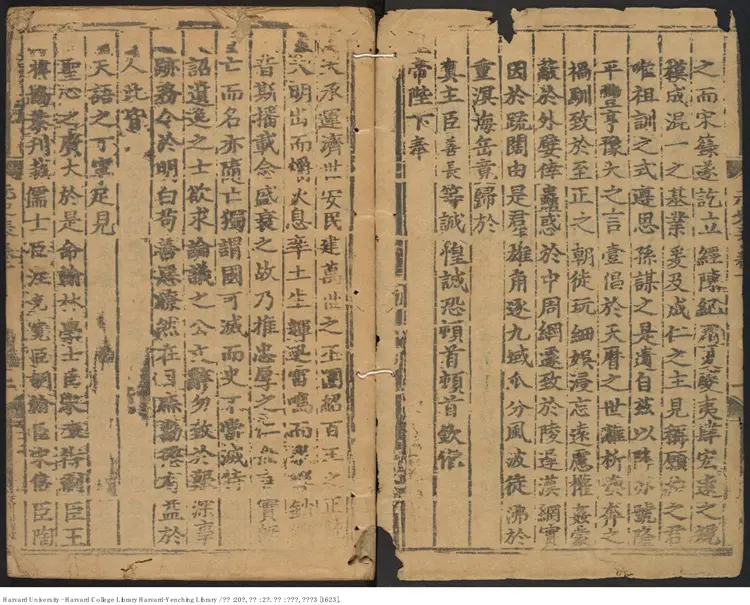 之而宋籙遂訖立經陳紀用夏變夷肆宏遠之規
模成混一之基業爰及成仁之主見稱願治之君
唯祖訓之式遵思孫謀之是遺自茲以降亦號隆
平豐亨豫大之言壹倡於天曆之世離析渙奔之
禍馴致於至正之朝徒玩細娛浸忘遠慮權姦蒙
蔽於外嬖倖蠱惑於中周綱遽致於陵遲漢網實
因於疏闊由是羣雄角逐九域瓜分風波徒沸於
重溟海岳竟歸於
真主臣善長等誠惶誠恐頓首頓首欽惟
帝陛下奉
天承運濟世安民建萬世之丕圖紹百王之正
大明出而爝火息率土生輝迅雷鳴而銷
音斯播載念盛衰之故乃推忠厚之仁僉言實既
亡而名亦隨亡獨謂國可滅而史不當滅特
詔遺逸之士欲求論議之公文辭勿致於艱深事
跡務令於明白苟善惡瞭然在目庶勸懲有益於
人此實
天語之丁寧足見
聖心之廣大於是命翰林學士臣宋濂待制臣王
禕協恭刊裁儒士臣汪克寬臣胡翰臣宋僖臣陶
Harvard University - Harvard College Library Harvard-Yenching Library / ?? :20?, ?? : 2?. ?? : ???, ???3 [1623].